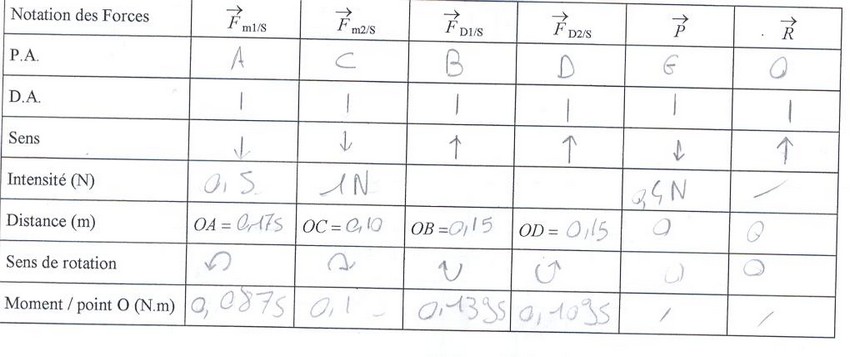 Notation des Forces F m1/S F m2/S F D1/S F D2/S P R
P.A. A C B D G O
D.A. | | | | | |
Sens ↓ ↓ ↑ ↑ ↓ ↑
Intensité (N) 0,5 1N N /
Distance (m) OA = 0,175 OC = 0,10 OB = 0,15 OD = 0,15 0 0
Sens de rotation 0
Moment / point O (N.m) 0,0875 0,1 0,1395 0,1095 / /